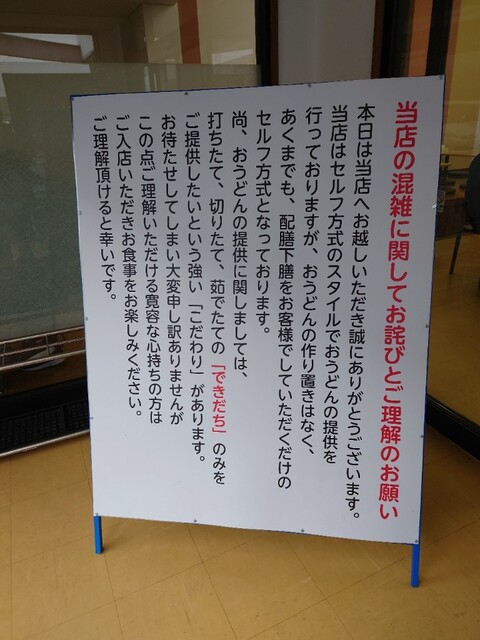 当店の混雑に関してお詫びとご理解のお願い
本日は当店へお越しいただき誠にありがとうございます。
当店はセルフ方式のスタイルでおうどんの提供を
行っておりますが、おうどんの作り置きはなく、
あくまでも、配膳下膳をお客様でしていただくだけの
セルフ方式となっております。
尚、おうどんの提供に関しましては、
打ちたて、切りたて、茹でたての「できだち」のみを
ご提供したいという強い「こだわり」があります。
お待たせしてしまい大変申し訳ありませんが
この点ご理解いただける寛容な心持ちの方は
ご入店いただきお食事をお楽しみください。
ご理解頂けると幸いです。